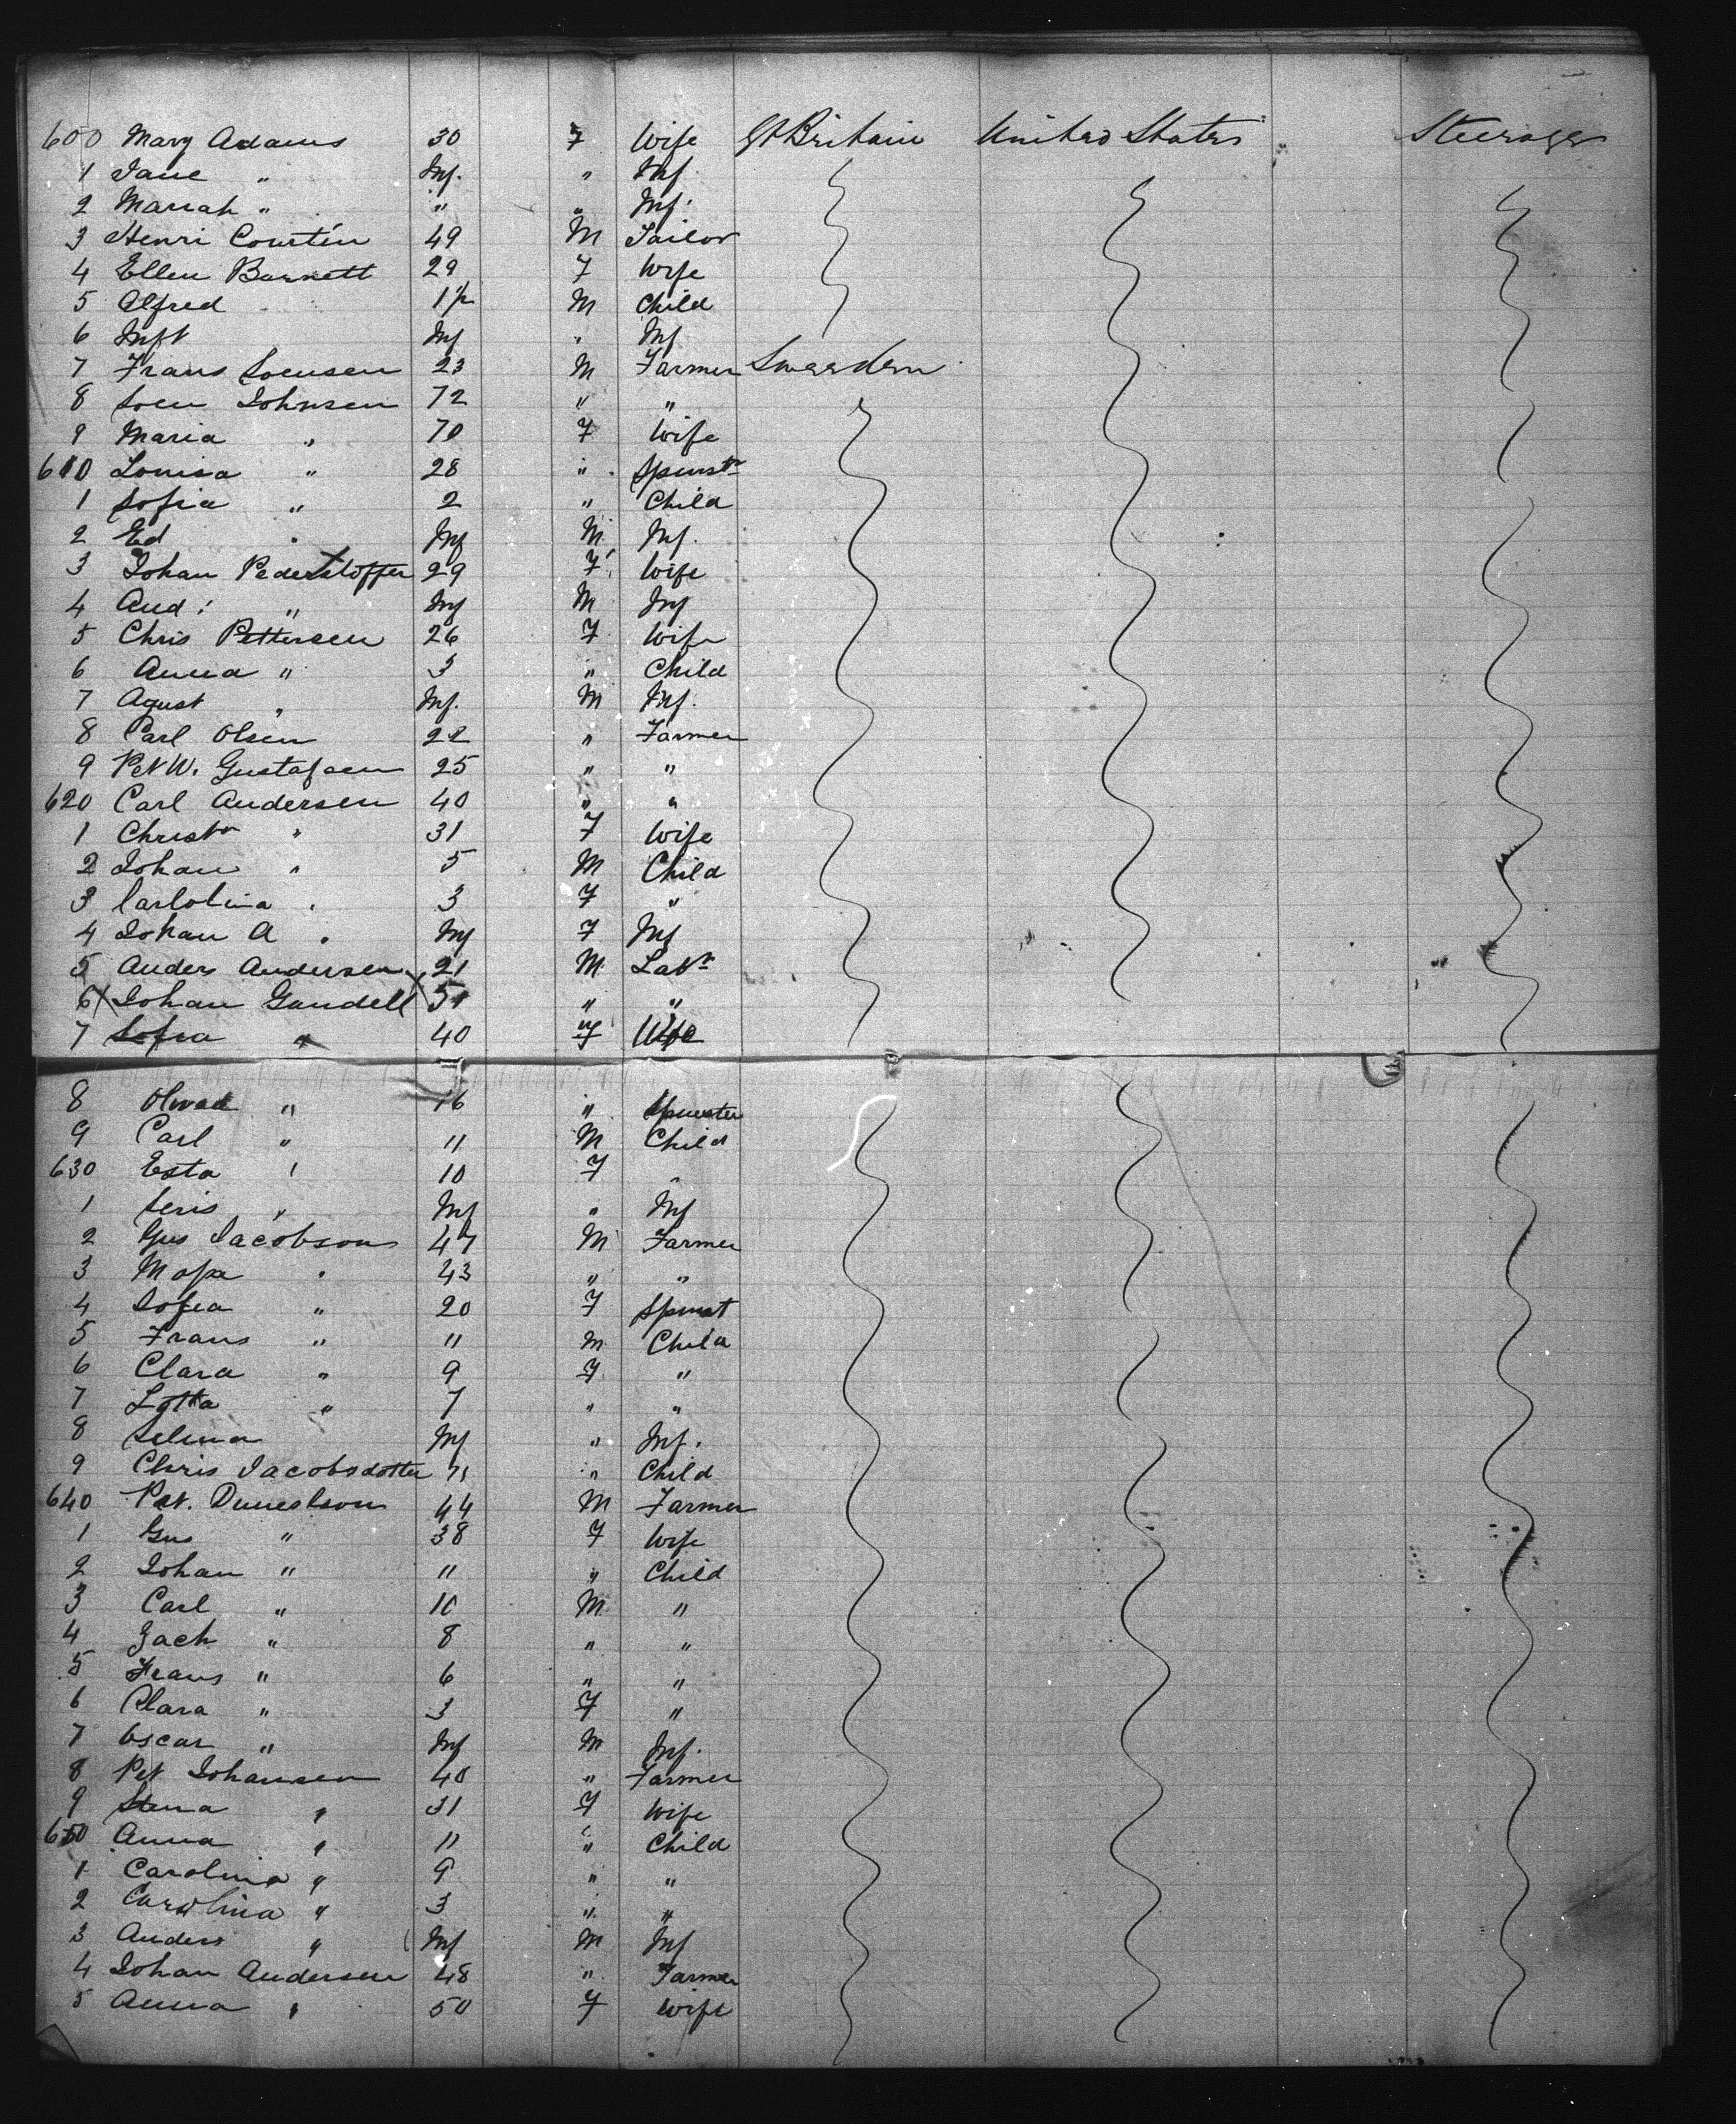 600 Mary Adams 30 F Wife Gt Britain United States Steerage
1 Jane " Inf. " Inf
2 Mariah " " " Inf.
3 Henri Courtin 49 M Tailor
4 Ellen Barnett 29 F Wife
5 Alfred 1½ M Child
6 Inft Inf " Inf
7 Frans Soensen 23 M Farmer Sweeden
8 Soen Johnsen 72 " "
9 Maria " 70 F Wife
610 Louisa " 28 " Spinstr
1 Sofia " 2 " Child
2 Ed " Inf M Inf.
3 Johan 29 F Wife
4 And: " Inf M Inf
5 Chris Pettersen 26 F Wife
6 Anna " 3 " Child
7 Agust " Inf. M Inf.
8 Carl Olsen 22 " Farmer
9 Pet W. Gustafsen 25 " "
620 Carl Andersen 40 " "
1 Christn " 31 F Wife
2 Johan " 5 M Child
3 Carlolina " 3 F "
4 Johan A " Inf F Inf
5 Anders Andersen 21 M Labr
6 X Johan Gundell X 51 " "
7 Sofia " 40 F Wife
8 " 16 " Spinster
9 Carl " 11 M Child
630 Esta " 10 F "
1 Seris " Inf " Inf
2 Gus Jacobson 47 M Farmer
3 " 43 " "
4 Sofia " 20 F Spinst
5 Frans " 11 M Child
6 Clara " 9 F "
7 Lotta " 7 " "
8 Selma Inf " Inf.
9 Chris Jacobsdotter " Child
640 Pet. 44 M Farmer
1 Gus " 38 F Wife
2 Johan " 11 " Child
3 Carl " 10 M "
4 Zach " 8 " "
5 Frans " 6 " "
6 Clara " 3 F "
7 Oscar " Inf M Inf.
8 Pet Johansen 40 " Farmer
9 Stena " 31 F Wife
650 Anna " 11 " Child
1 Carolina " 9 " "
2 Carolina " 3 " "
3 Anders " Inf M Inf
4 Johan Andersen 48 " Farmer
5 Anna " 50 F Wife